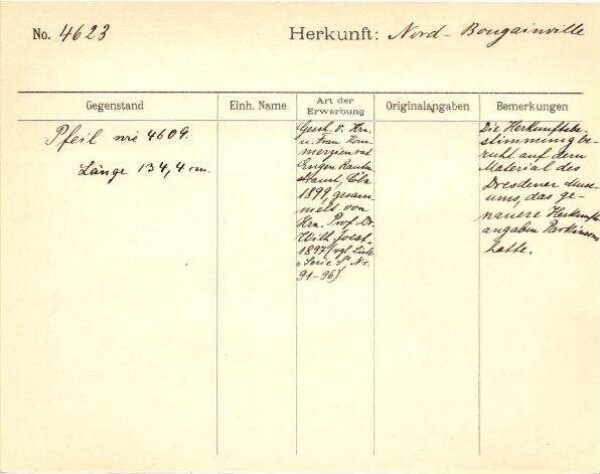 No. 4623
Herkunft: Nord-Bougainville
Gegenstand
Einh. Name
Art der Erwerbung
Originalangaben
Bemerkungen
Pfeil wie 4609.
Länge 134,4 cm.
Gesch. v. Hrn.
u. Frau Kom-
merzienrat
Eugen Rauten-
strauch, Cöln
1899, gesam-
melt von
Hrn. Prof. Dr.
Wilh. Joest.
1897 (vgl. Liste
Serie S Nr.
91-96).
Die Herkunftsbe-
stimmung be-
ruht auf dem
Material des
Dresdener Muse-
ums, das ge-
nauere Herkunfts
angaben Parkinsons
hatte.